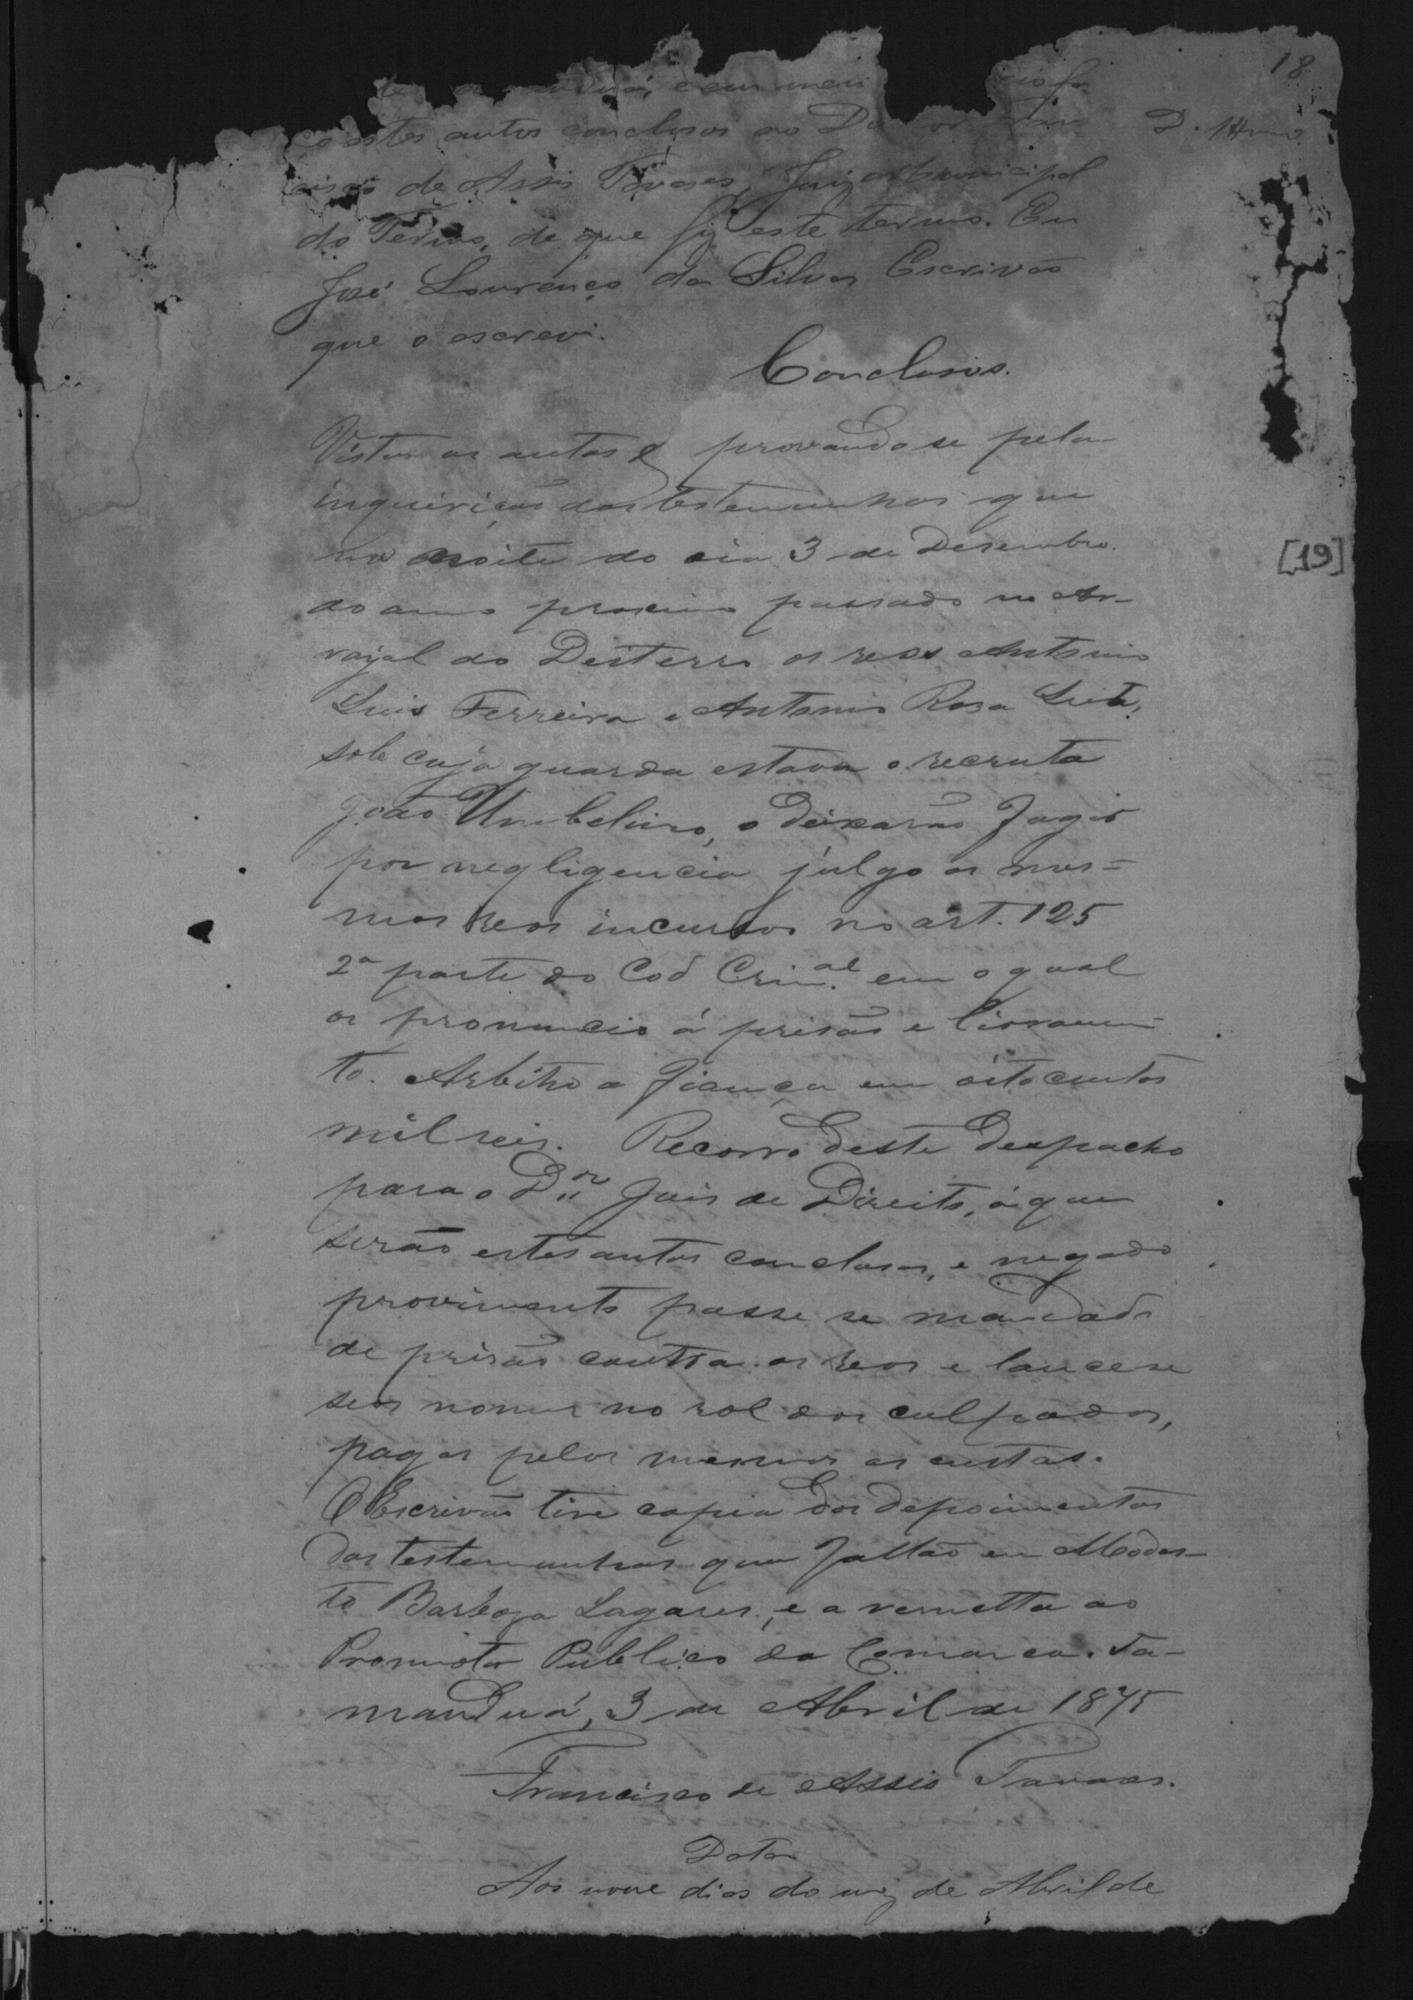 18
e em meu
estes autos conclusos ao D
cisco de Assis Tavares, Juiz Municipal
do Termo, de que fiz este termo. Eu
José Lourenço da Silva Escrivão
que o escrevi.
Conclusos.
Vistos os autos & provando se pela
inquirição das testemunhas que
na noite do dia 3 de Desembro
do anno proximo passado no Ar-
raial do Desterro os reos Antonio
Luis Ferreira e Antonio Rosa
sob cuja guarda estava o recruta
João Umbelino, o deixarão fugir
por negligencia julgo os mes=
mos reos incursos no art. 125
2ª parte do Cod Crim.al em o qual
os pronuncio á prisão e livramen-
to. Arbitro a fiança em oitocentos
mil reis. Recorro deste despacho
para o Dr. Juis de Direito, á quem
serão estes autos conclusos, e negado
provimento passe se mandado
de prisão contra os reos e lancese
seos nomes no rol dos culpados,
pagas pelos mesmos as custas.
O Escrivão tire copia dos depoimentos
das testemunhas que fallão em Modes-
to Barboza Lagares, e a remetta ao
Promotor Publico da Comarca. Ta-
manduá, 3 de Abril de 1875
Francisco de Assis Tavares.
Data
Aos nove dias do mez de Abril de
[19]